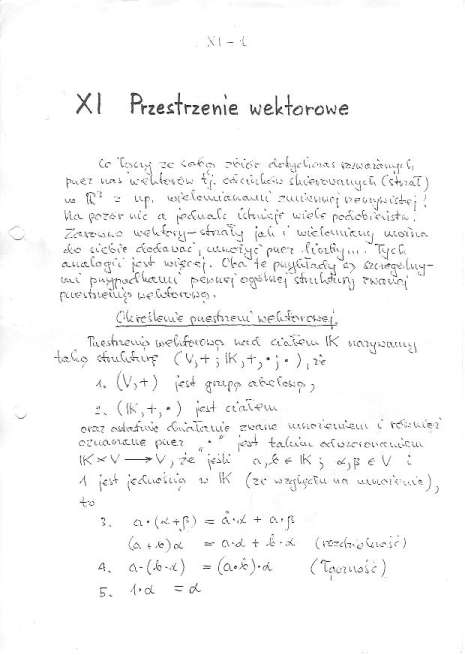 XI - 1
XI Przestrzenie wektorowe
Co łączy ze sobą zbiór dotychczas rozważanych
przez nas wektorów tj. odcinków skierowanych (strzał)
w ℝ³ z np. wielomianami zmiennej rzeczywistej?
Na pozór nic a jednak istnieje wiele podobieństw.
Zarówno wektory-strzały jak i wielomiany można
do siebie dodawać, mnożyć przez liczby... Tych
analogii jest więcej. Oba te przykłady są szczególny-
mi przypadkami pewnej ogólnej struktury zwanej
przestrzenią wektorową.
Określenie przestrzeni wektorowej.
Przestrzenią wektorową nad ciałem IK nazywamy
taką strukturę (V,+; IK,+,·;·), że
1. (V,+) jest grupą abelową,
2. (IK,+,·) jest ciałem
oraz ostatnie działanie zwane mnożeniem i również
oznaczane przez "·" jest takim odwzorowaniem
IK × V ⟶ V, że jeśli a, b ∈ IK ; α, β ∈ V i
1 jest jednością w IK (ze względu na mnożenie),
to
3. a·(α+β) = a·α + a·β
(a+b)α = a·α + b·α (rozdzielność)
4. a·(b·α) = (a·b)·α (łączność)
5. 1·α = α